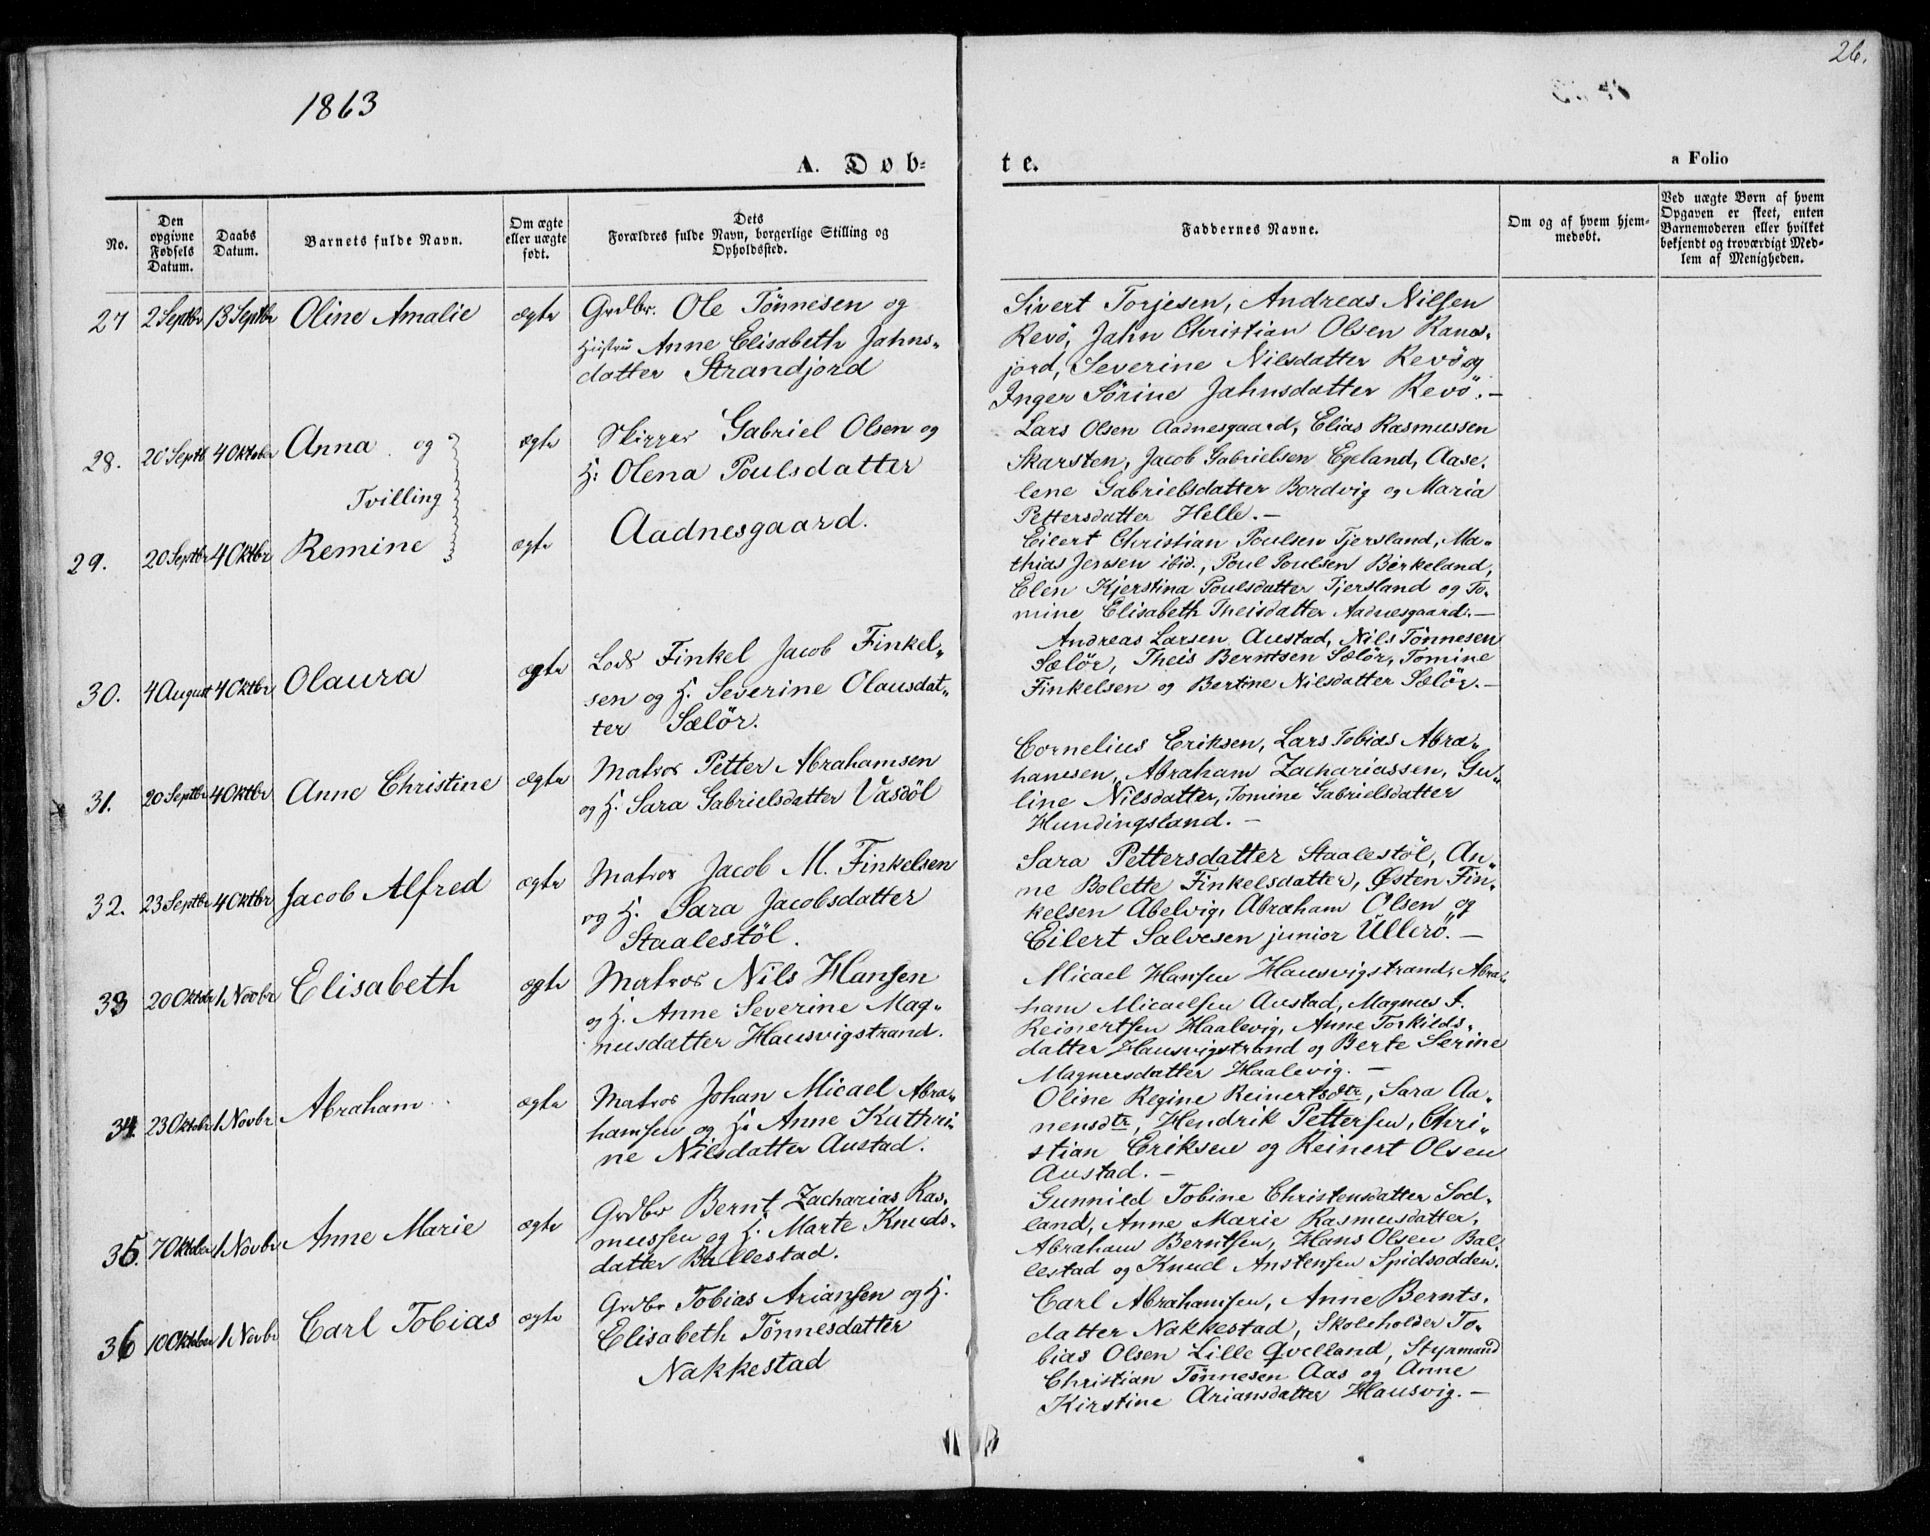 26.
1863
A. Døb-
te.
a Folio
No.
Den opgivne Fødsels Datum.
Daabs Datum.
Barnets fulde Navn.
Om ægte eller uægte født.
Dets Forældres fulde Navn, borgerlige Stilling og Opholdssted.
Faddernes Navne.
Om og af hvem hjemmedøbt.
Ved uægte Børn af hvem Opgaven er skeet, enten Barnemoderen eller hvilket bekjendt og troværdigt Medlem af Menigheden.
27 2 Septbr 13 Septbr Oline Amalie ægte
Grdbr. Ole Tönnesen og
Hustru Anne Elisabeth Jahns-
datter Strandjord
Sivert Torjesen, Andreas Nilsen
Revö, Jahn Christian Olsen Rans-
jord, Severine Nilsdatter Revö og
Inger Sörine Jahnsdatter Revö. -
28. 20 Septb 4 Oktober Anna og ægte
Tvilling
Skipper Gabriel Olsen og
H: Olena Poulsdatter
Aadnesgaard.
Lars Olsen Aadnesgaard, Elias Rasmussen
Skarsten, Jacob Gabrielsen Egeland, Aase-
lene Gabrielsdatter Bordvig og Maria
Pettersdatter Helle. -
29. 20 Septbr 4 Oktbr Remine ægte
Eilert Christian Poulsen Tjersland, Ma-
thias Jensen ibid., Poul Poulsen Birkeland,
Elen Kjerstina Poulsdatter Tjersland og To-
mine Elisabeth Theisdatter Aadnesgaard. -
30. 4 August 4 Oktbr Olaura ægte
Lods Finkel Jacob Finkel-
sen og H. Severine Olausdat-
ter Sælör.
Andreas Larsen Austad, Nils Tönnesen
Sælör, Theis Berntsen Sælör, Tomine
Finkelsen og Bertine Nilsdatter Sælör. -
31. 20 Septbr 4 Oktbr Anne Christine ægte
Matros Petter Abrahamsen
og H. Sara Gabrielsdatter Vasböl
Cornelius Eriksen, Lars Tobias Abra-
hamsen, Abraham Zachariassen, Gu-
line Nilsdatter, Tomine Gabrielsdatter
Hundingsland. -
32. 23 Septbr 4 Oktbr Jacob Alfred ægte
Matros Jacob M. Finkelsen
og H. Sara Jacobsdatter
Staalestöl.
Sara Pettersdatter Staalestöl, An-
ne Bolette Finkelsdatter, Østen Fin-
kelsen Abelvig, Abraham Olsen og
Eilert Salvesen junior Ullerö. -
33 20 Oktbr 1 Novbr Elisabeth ægte
Matros Nils Hansen
og H. Anne Severine Mag-
nusdatter Hausvigstrand.
Micael Hansen Hausvigstrand, Abra-
ham Micaelsen Austad, Magnus I.
Reinertsen Haalevig, Anne Torkilds-
datter Hausvigstrand og Berte Serine
Magnusdatter Haalevig. -
34. 23 Oktobr 1 Novbr Abraham ægte
Matros Johan Micael Abra-
hamsen og H: Anne Kathri-
ne Nilsdatter Austad.
Oline Regine Reinertsdtr, Sara Aa-
nensdtr, Hendrik Pettersen, Chri-
stian Eriksen og Reinert Olsen
Austad. -
35. 7 Oktober 1 Novbr Anne Marie ægte
Grdbr Bernt Zacharias Ras-
mussen og H. Marte Knuds-
datter Ballestad.
Gunnild Tobine Christensdatter Sod-
land, Anne Marie Rasmusdatter,
Abraham Berntsen, Hans Olsen Bal-
lestad og Knud Anstensen Spidsodden.
36 10 Oktober 1 Novbr Carl Tobias ægte
Grdbr Tobias Ariansen og H.
Elisabeth Tönnesdatter
Nakkestad
Carl Abrahamsen, Anne Bernts-
datter Nakkestad, Skoleholder To-
bias Olsen Lille Qvelland, Styrmand
Christian Tönnesen Aas og Anne
Kirstine Ariansdatter Hausvig. -